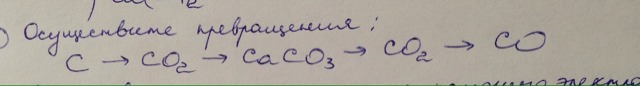 ) Осуществите превращения:
C → CO₂ → CaCO₃ → CO₂ → CO